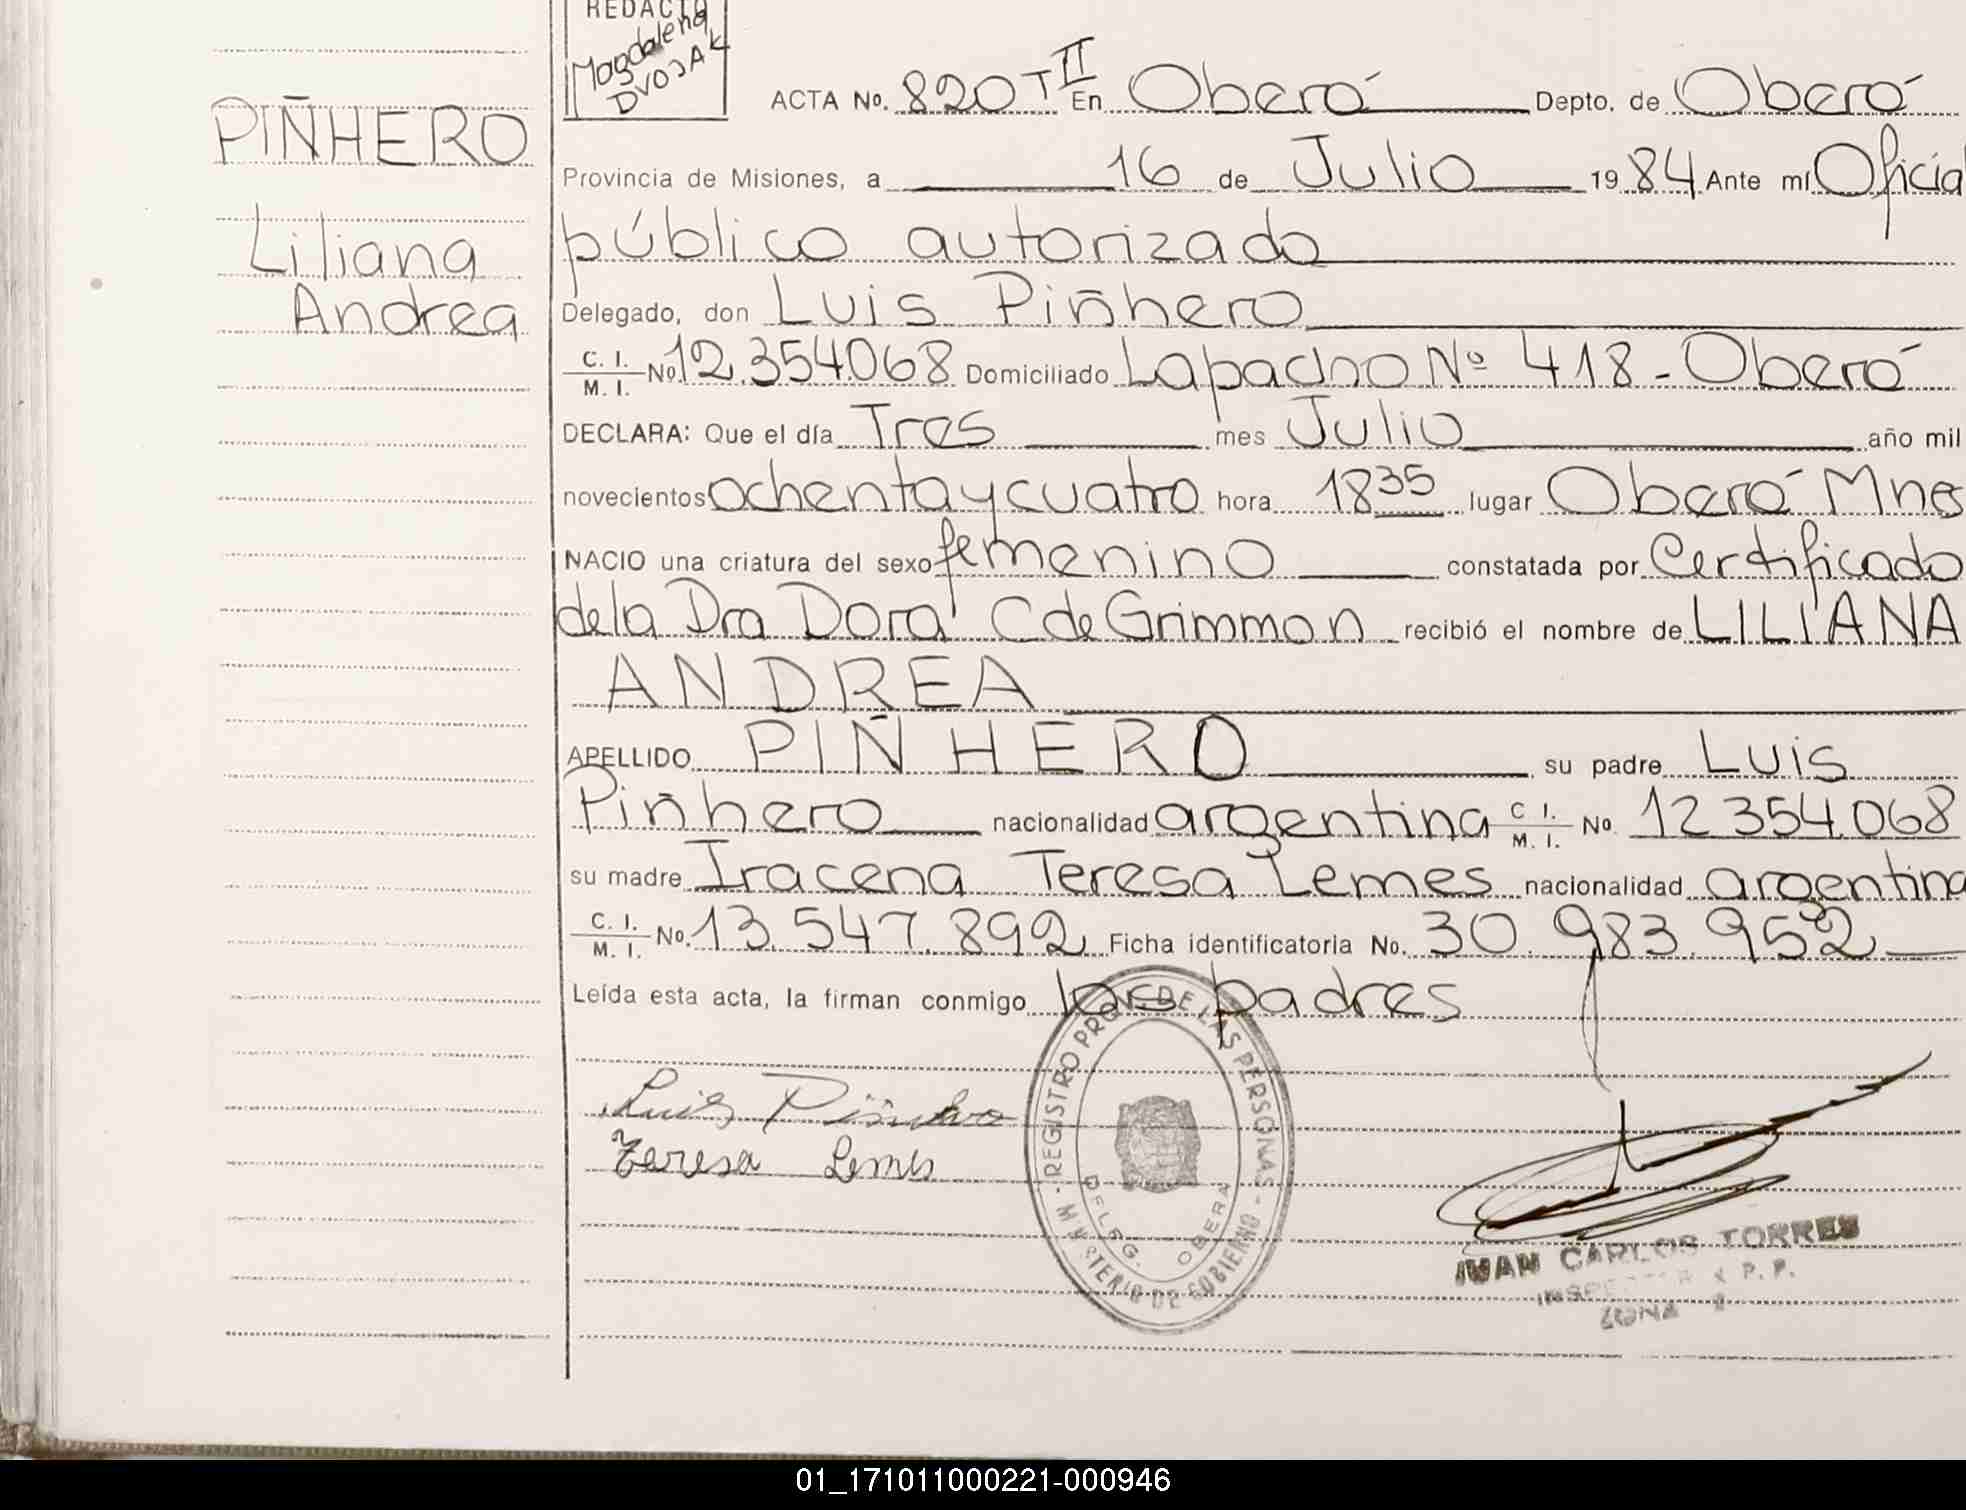 REDACTO
Magdalena
DVOJAK
ACTA No. 820 T II En Oberá Depto. de Oberá
PIÑHERO
Provincia de Misiones, a 16 de Julio 1984 Ante mí Oficial
público autorizado
Liliana
Andrea
Delegado, don Luis Piñhero
C. I.
M. I. No. 12.354.068 Domiciliado Lapacho Nº 418 - Oberá
DECLARA: Que el día Tres mes Julio año mil
novecientos ochenta y cuatro hora 18 35 lugar Oberá Mnes
NACIO una criatura del sexo femenino constatada por Certificado
de la Dra Dora C de Grimmon recibió el nombre de LILIANA
ANDREA
APELLIDO PIÑHERO su padre Luis
Piñhero nacionalidad argentina C. I. M. I. No. 12 354.068
su madre Iracena Teresa Lemes nacionalidad argentina
C. I.
M. I. No. 13.547.892 Ficha identificatoria No. 30.983.952
Leída esta acta, la firman conmigo los padres
Luis Piñhero
Teresa Lemes
REGISTRO PROV. DE LAS PERSONAS - MINISTERIO DE GOBIERNO -
DELEG. OBERA
JUAN CARLOS TORRES
ZONA
01_171011000221-000946